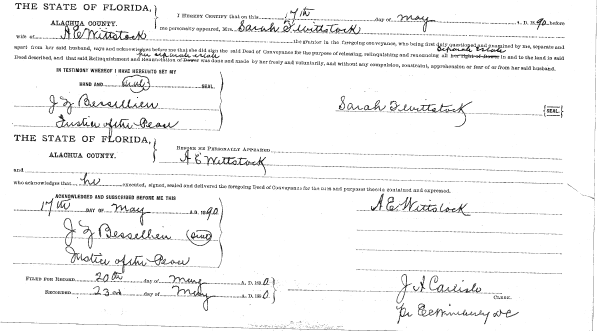 THE STATE OF FLORIDA,
ALACHUA COUNTY.
I HEREBY CERTIFY that on this 17th day of May A. D. 1890, before
me personally appeared, Mrs. Sarah F Wittstock
wife of A E Wittstock the grantor in the foregoing conveyance, who being first duly questioned and examined by me, separate and
apart from her said husband, says and acknowledges before me that she did sign the said Deed of Conveyance for the purpose of releasing, relinquishing and renouncing all her right of Dower separate estate in and to the land in said
her separate estate
Deed described, and that said Relinquishment and Renunciation of Dower was done and made by her freely and voluntarily, and without any compulsion, constraint, apprehension or fear of or from her said husband.
IN TESTIMONY WHEREOF I HAVE HEREUNTO SET MY
HAND AND (seal) SEAL.
J Z Bessellieu
Justice of the Peace
Sarah F Wittstock {SEAL.}
THE STATE OF FLORIDA,
ALACHUA COUNTY.
BEFORE ME PERSONALLY APPEARED
A E Wittstock
and
who acknowledges that he executed, signed, sealed and delivered the foregoing Deed of Conveyance for the uses and purposes therein contained and expressed.
ACKNOWLEDGED AND SUBSCRIBED BEFORE ME THIS
17th DAY OF May A.D. 1890
J Z Bessellieu (seal)
Justice of the Peace
A E Wittstock
FILED FOR RECORD 20th day of May A. D. 1890.
RECORDED 23rd day of May A. D. 1890.
J A Carlisle
CLERK.